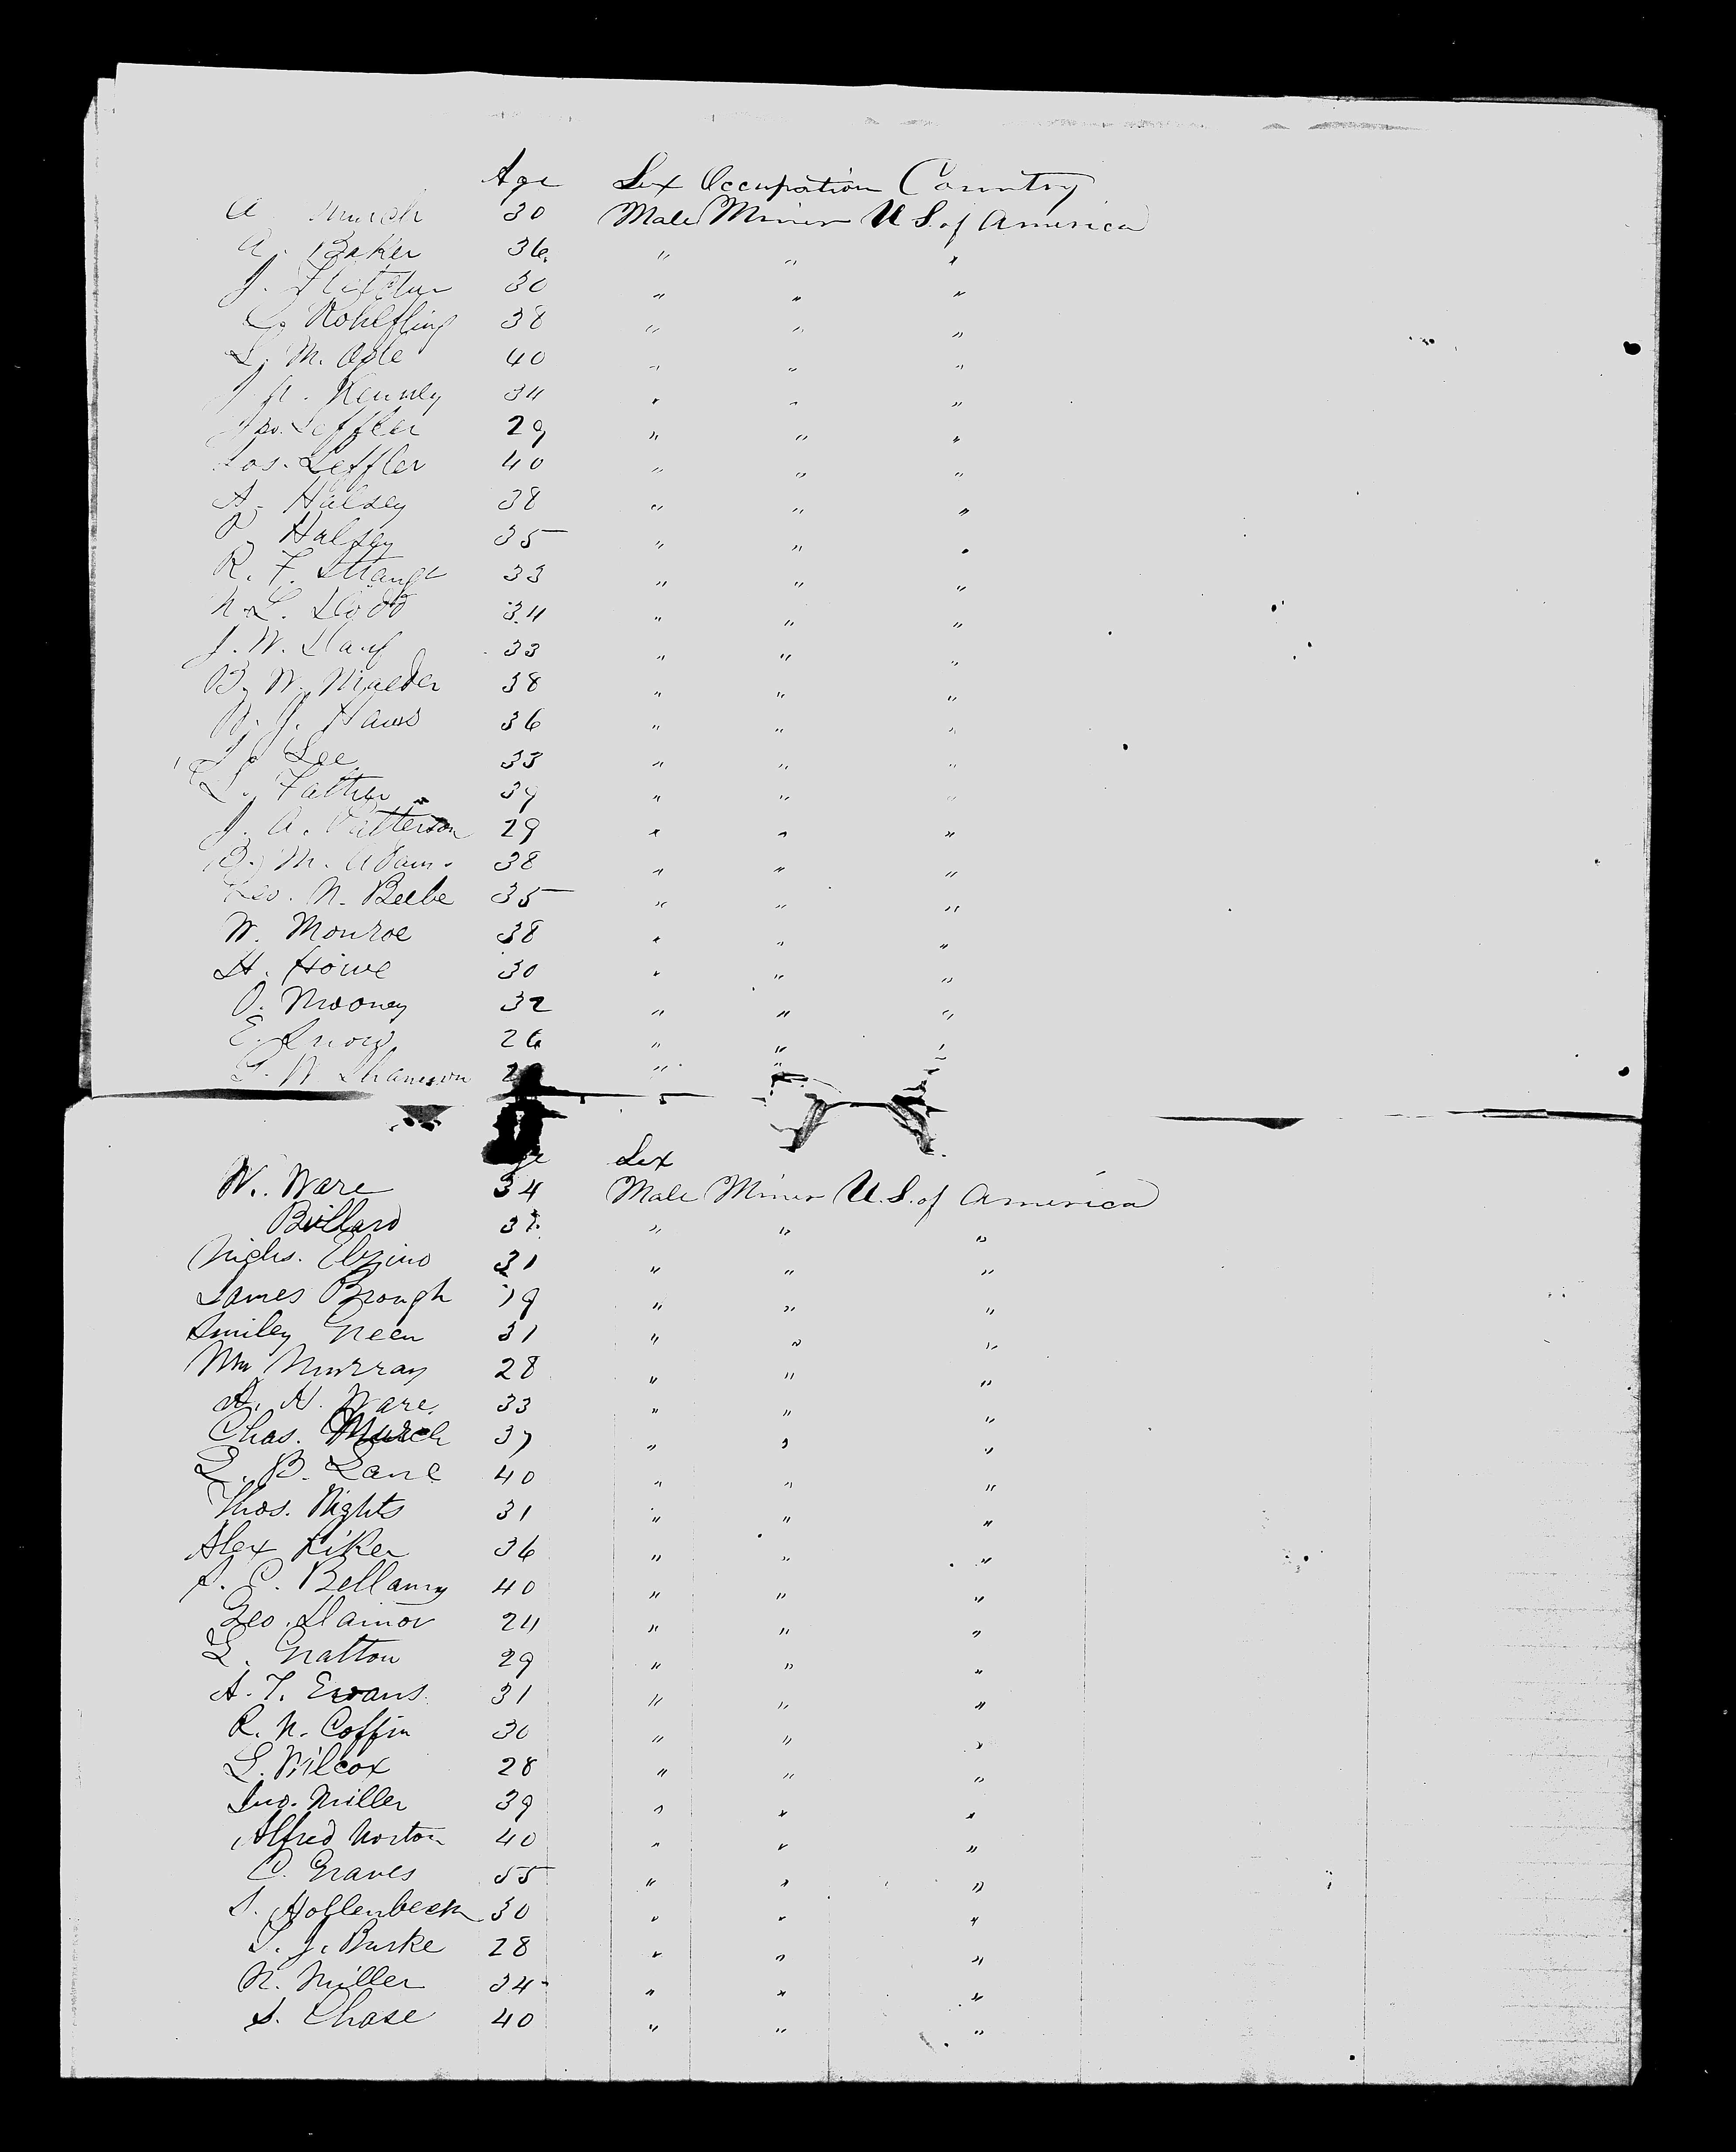 Age Sex Occupation Country
A. 30 Male Miner U.S. of America
A. Baker 36 " " "
J. 30 " " "
C. Rohlfling 38 " " "
L. M. Ogle 40 " " "
Kenney 34 " " "
Jno. Leffler 29 " " "
Jos. Leffler 40 " " "
A. Halsey 38 " " "
P. Halsey 35 " " "
R. F. Strange 33 " " "
N. L. Dodd 34 " " "
J. W. 33 " " "
B. W. Maeder 38 " " "
J. 36 " " "
Lee 33 " " "
L. 39 " " "
J. A. Patterson 29 " " "
B. M. Adams 38 " " "
Geo. N. Beebe 35 " " "
W. Monroe 38 " " "
H. Howe 30 " " "
O. Mooney 32 " " "
E. Snow 26 " " "
G. W. " "
Sex
W. Ware 34 Male Miner U.S. of America
Bullard " " "
31 " " "
James Brough 19 " " "
Smiley Green 31 " " "
Wm Murray 28 " " "
A. H. Ware 33 " " "
Chas. Murch 37 " " "
L. B. Lane 40 " " "
Thos. Nights 31 " " "
Alex Riker 36 " " "
S. C. Bellamy 40 " " "
Geo. Damov 24 " " "
L. Gratton 29 " " "
A. T. Evans 31 " " "
R. N. Coffin 30 " " "
L. Wilcox 28 " " "
Jno. Miller 39 " " "
Alfred Norton 40 " " "
C. Graves 55 " " "
S. Hollenbeck 30 " " "
T. J. Burke 28 " " "
N. Miller 34 " " "
S. Chase 40 " " "